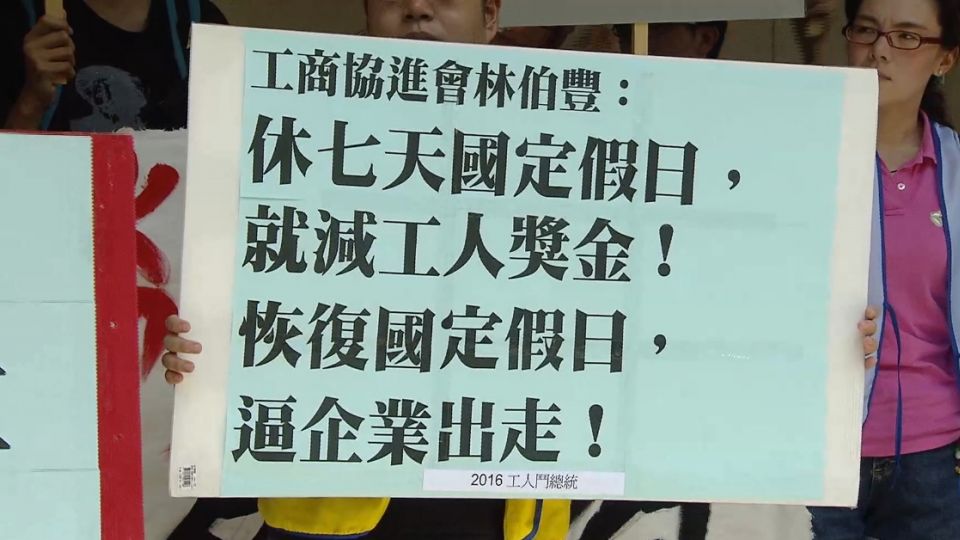 工商協進會林伯豐：
休七天國定假日，
就減工人獎金！
恢復國定假日，
逼企業出走！
2016 工人鬥總統